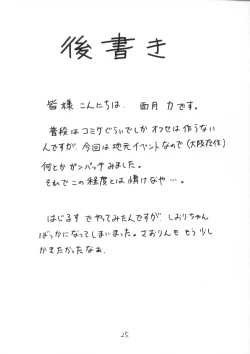 後書き
皆様こんにちは、面月力です。
普段はコミケぐらいでしかオフセは作らない
んですが、今回は地元イベントなので(大阪在住)
何とかガンバッテみました。
それでこの程度とは情けなや…。
はじるすでやってみたんですが、しおりちゃん
ばっかになってしまいました。さおりんももう少し
かきたかったなぁ。
25